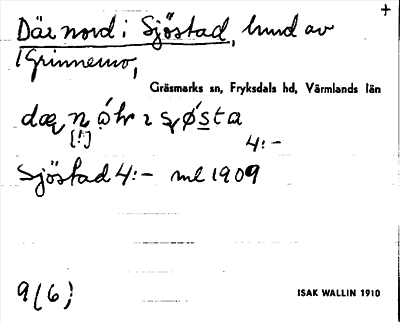 +
Där nord i Sjöstad, lund av
1 Grinnemo,
Gräsmarks sn, Fryksdals hd, Värmlands län
[!]
4:-
Sjöstad 4:- ml 1909
9(6)
ISAK WALLIN 1910